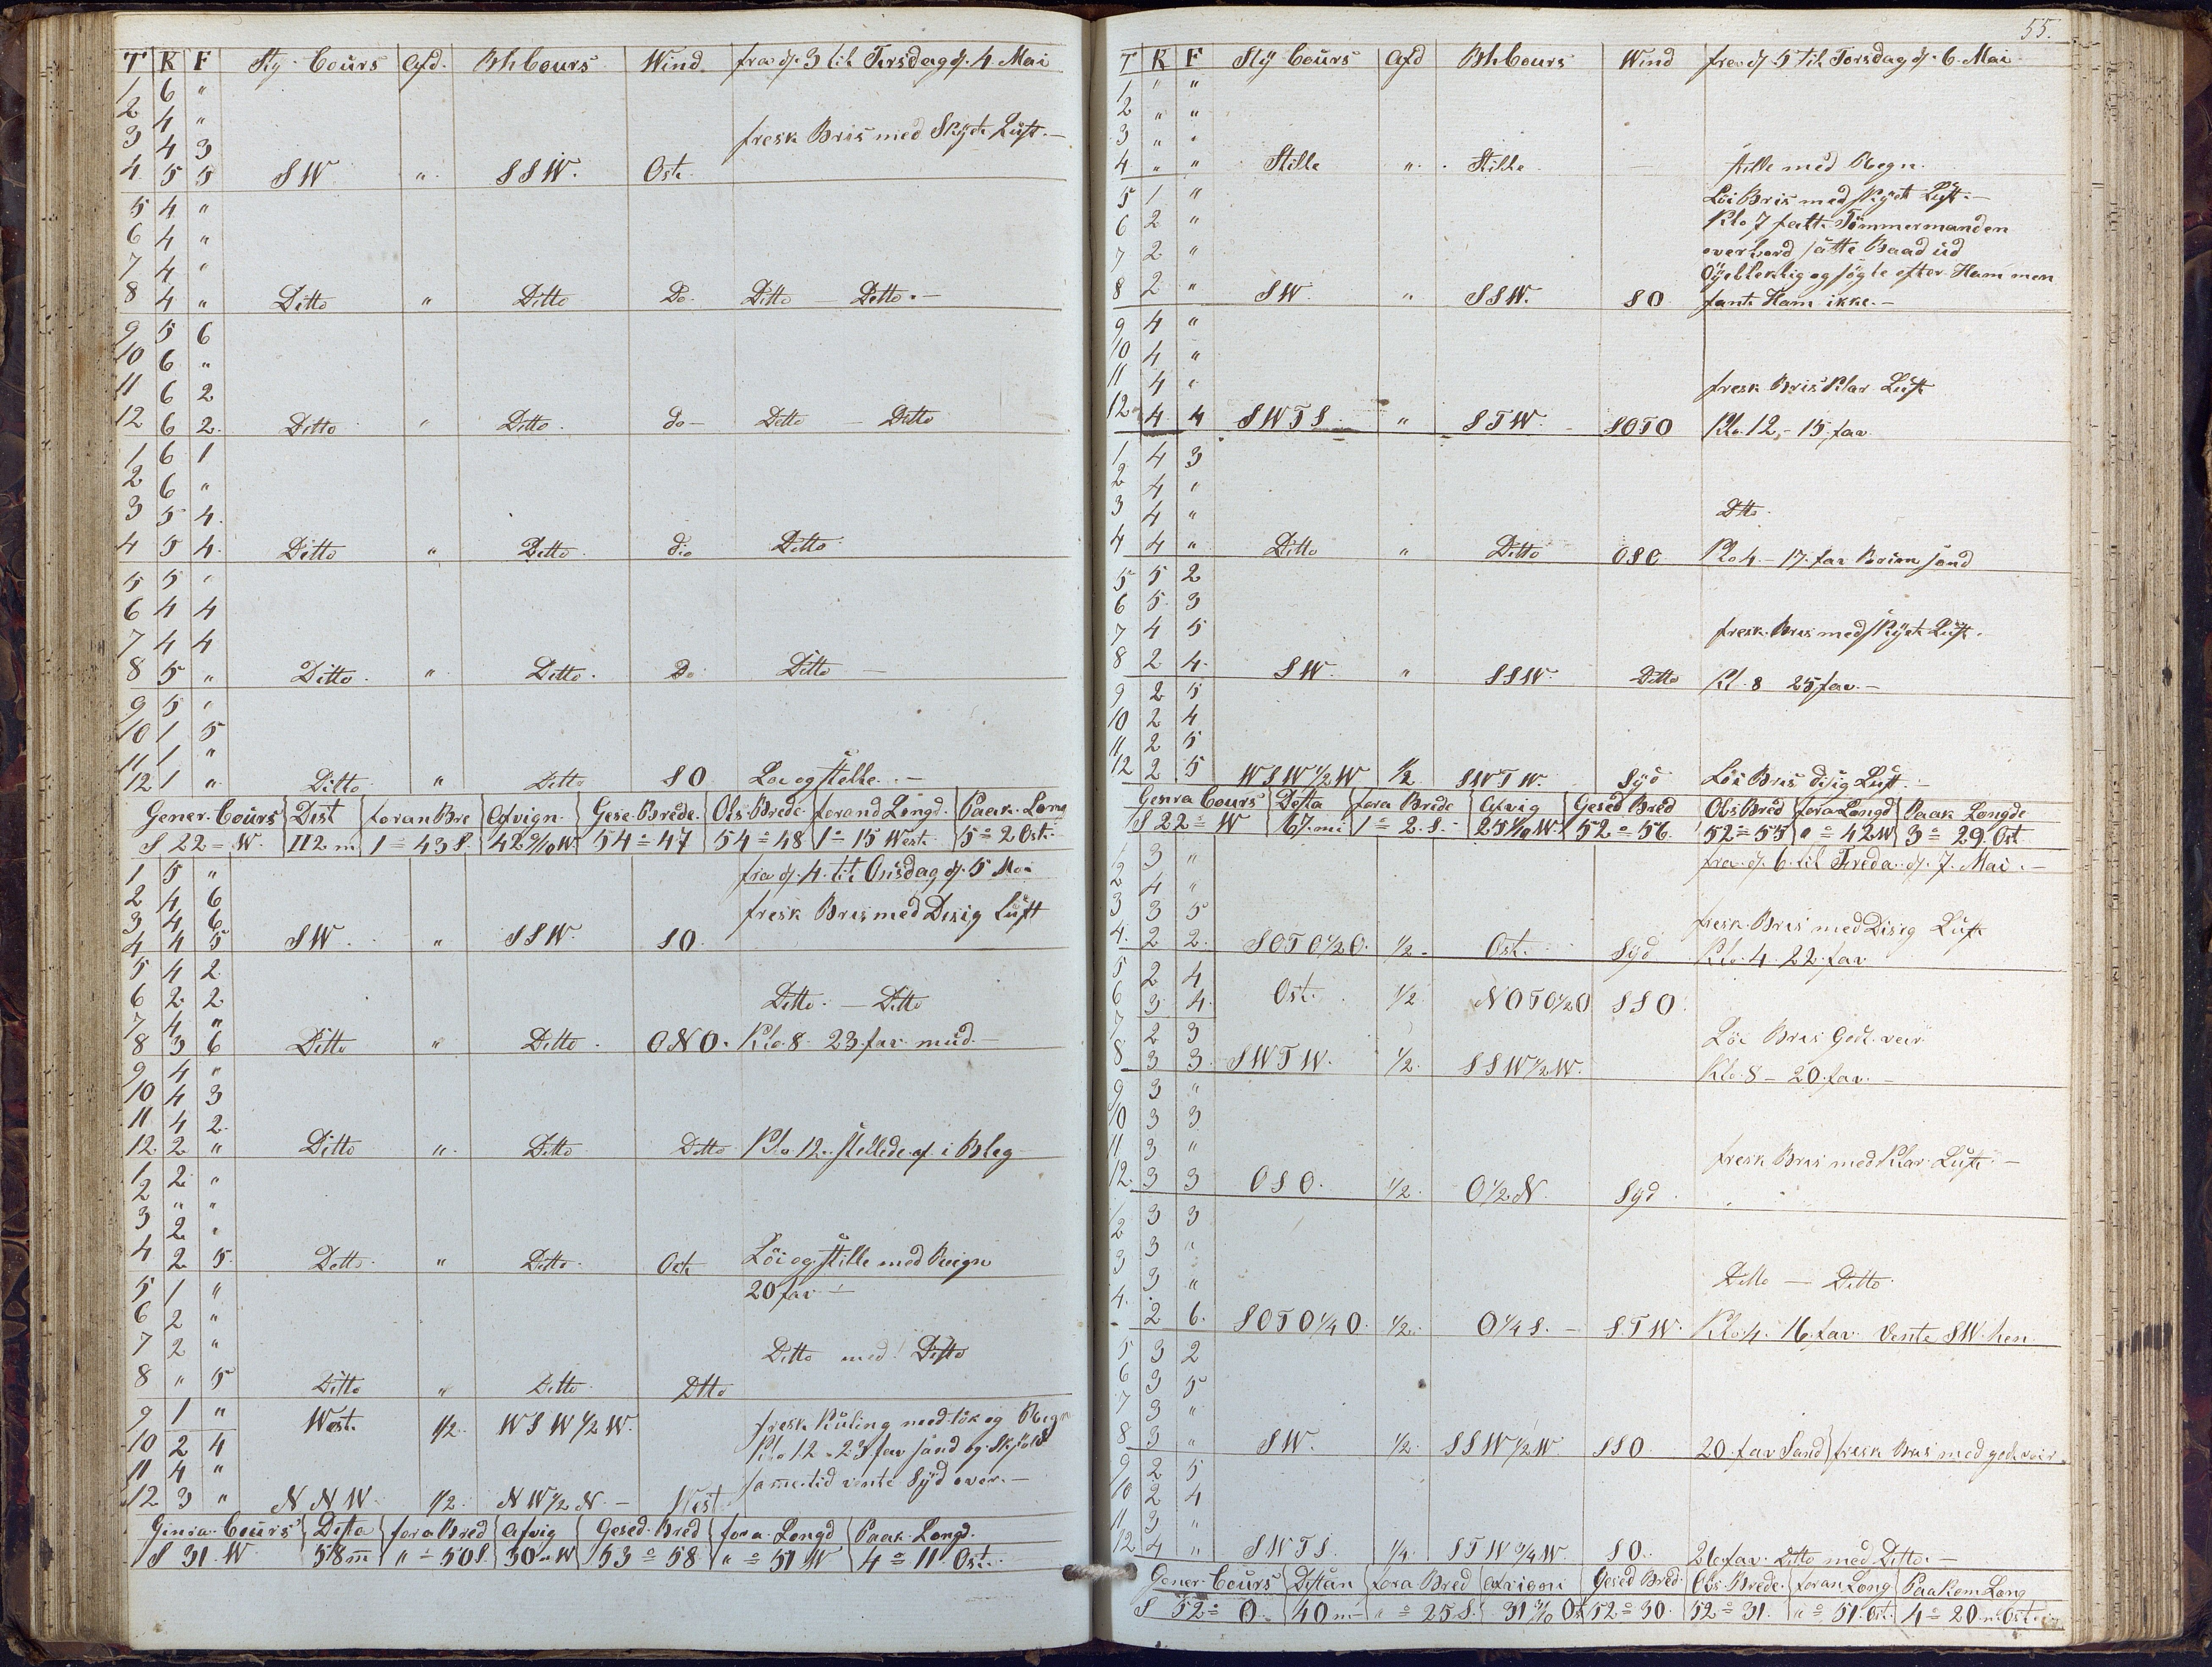 T K F Sty. Coürs Afd. Bhcours Wind fra d. 3 til Tirsdag d. 4 Mai
1 6 "
2 4 "
3 4 3 fresk Bris med Skyet Lüft.—
4 5 5 SW " SSW. Ost.
5 4 "
6 4 "
7 4 "
8 4 " Ditto " Ditto Do. Ditto — Ditto.—
9 5 6
10 6 "
11 6 2
12 6 2. Ditto " Ditto. do— Ditto — Ditto
1 6 1
2 6 "
3 5 4.
4 5 4. Ditto " Ditto. dio Ditto
5 5 "
6 4 4
7 4 4
8 5 " Ditto. " Ditto. Do Ditto —
9 5 "
10 1 5
11 1 "
12 1 " Ditto " Ditto SO Löi og Stille.—
Gener. Coürs Dist foran Bre Afvign. Gese. Brede. Obs. Brede. forand Längd. Paak. Long
S 22° W. 112 m 1° 43 S. 42 9/10 W. 54° 47 54° 48 1° 15 West. 5° 2 Ost.
fra d. 4. til Onsdag d. 5 Mai
1 5 "
2 4 6
3 4 6 fresk Bris med Disig Lüft
4 4 5 SW. " SSW. SO.
5 4 2.
6 2 2 Ditto. — Ditto
7 4 "
8 3 6 Ditto " Ditto. ONO. Klo. 8. 23. fav. mud.—
9 4 "
10 4 3
11 4 2.
12. 2 " Ditto ". Ditto. Ditto Klo 12. stillede af i Bleg
1 2 "
2 " "
3 2 "
4 2 5. Ditto. " Ditto. Ost Löi og Stille med Reign
5 1 " 20 fav —
6 2 "
7 2 " Ditto med Ditto
8 " 5 Ditto " Ditto Dtto
9 1 " West. 1/2. WSW 1/2 W. fresk Kuling med tök og Regn
10 2 4 Klo 12 - 23 fav sand og Skjöld
11 4 " samme tid vente Syd over.—
12 3 " NNW. 1/2. NW 1/2 N.— West.
Ginra. Coürs Dista fora Bred Afvig Gesed. Bred fora. Longd Paak. Longd.
S 31. W. 58 m " ° 50 S. 30 " W 53° 58 " ° 51 W 4° 11 Ost.
55.
T K F Sty Coürs Afd Bhcours Wind fra d. 5 til Torsdag d. 6. Mai
1 " "
2 " "
3 " "
4 " " Stille " Stille — stille med Regn.
5 1 " Löi Bris med skyet Lüft.—
6 2 " Klo 7 faldt Tömmermanden
7 2 " overbord satte Baad üd
Öyeblikkelig og sögte efter Ham men
8 2 " SW. " SSW. SO fante Ham ikke.—
9 4 "
10 4 "
11 4 " fresk Bris Klar Lüft
12 4 4 SWTS " STW. SOTO Klo. 12,- 15. fav.
1 4 3
2 4 "
3 4 " Dtto.
4 4 " Ditto " Ditto OSO. Klo 4.— 17. fav Brün sand
5 5 2
6 5. 3
7 4 5 fresk. Bris med Skyet Lüft.
8 2 4. SW. " SSW. Ditto Kl. 8 25 fav.—
9 2 5
10 2 4
11 2 5
12 2 5 WSW 1/2 W 1/2 SWTW. Syd Löi Bris disig Lüft.
Genra Coürs Dista fora Brede Afvig Gesed Bred Obs Bred fora Longd Paak Longde
S 22° W 67. mi 1° 2. S. 25 1/10 W. 52° 56. 52° 55 " ° 42 W 3° 29. Ost
fra. d. 6. til Freda. d. 7. Mai.—
1 3 "
2 4 "
3 3 5 fresk Bris med Disig Lüft
4. 2 2. SOTO 1/2 O. 1/2. Ost. Syd Klo. 4. 22. fav
5 2 4
6 3 4. Ost. 1/2 NOTO 1/2 O SSO.
7 2 3 Löi Bris Godt veir.
8 3 3. SWTW. 1/2. SSW 1/2 W. Klo. 8 — 20. fav.—
9 3 "
10 3 3
11 3 " fresk Bris med Klar Lüft.—
12. 3 3 OSO. 1/2. O 1/2 N. Syd
1 3 3
2 3 "
3 3 " Ditto — Ditto.
4. 2 6. SOTO 1/4 O. 1/2. O 1/4 S.— STW. Klo. 4. 16. fav. vente SW. hen
5 3 2
6 3 5
7 3 "
8 3 " SW. 1/2. SSW 1/2 W. SSO 20. fav Sand fresk Bris med godt veir.
9 2 5
10 2 4
11 3 "
12. 4 " SWTS. 1/4. STW 3/4 W. SO. 26. fav. Ditto med Ditto.—
Gener. Coürs Distan fora Bred Afvign Gesed Bred. Obs. Brede. foran Long Paakom Long
S 52° O. 40 m " ° 25 S. 31 9/10 Ost 52° 30. 52° 31. " ° 51. Ost. 4° 20. m. Ost.